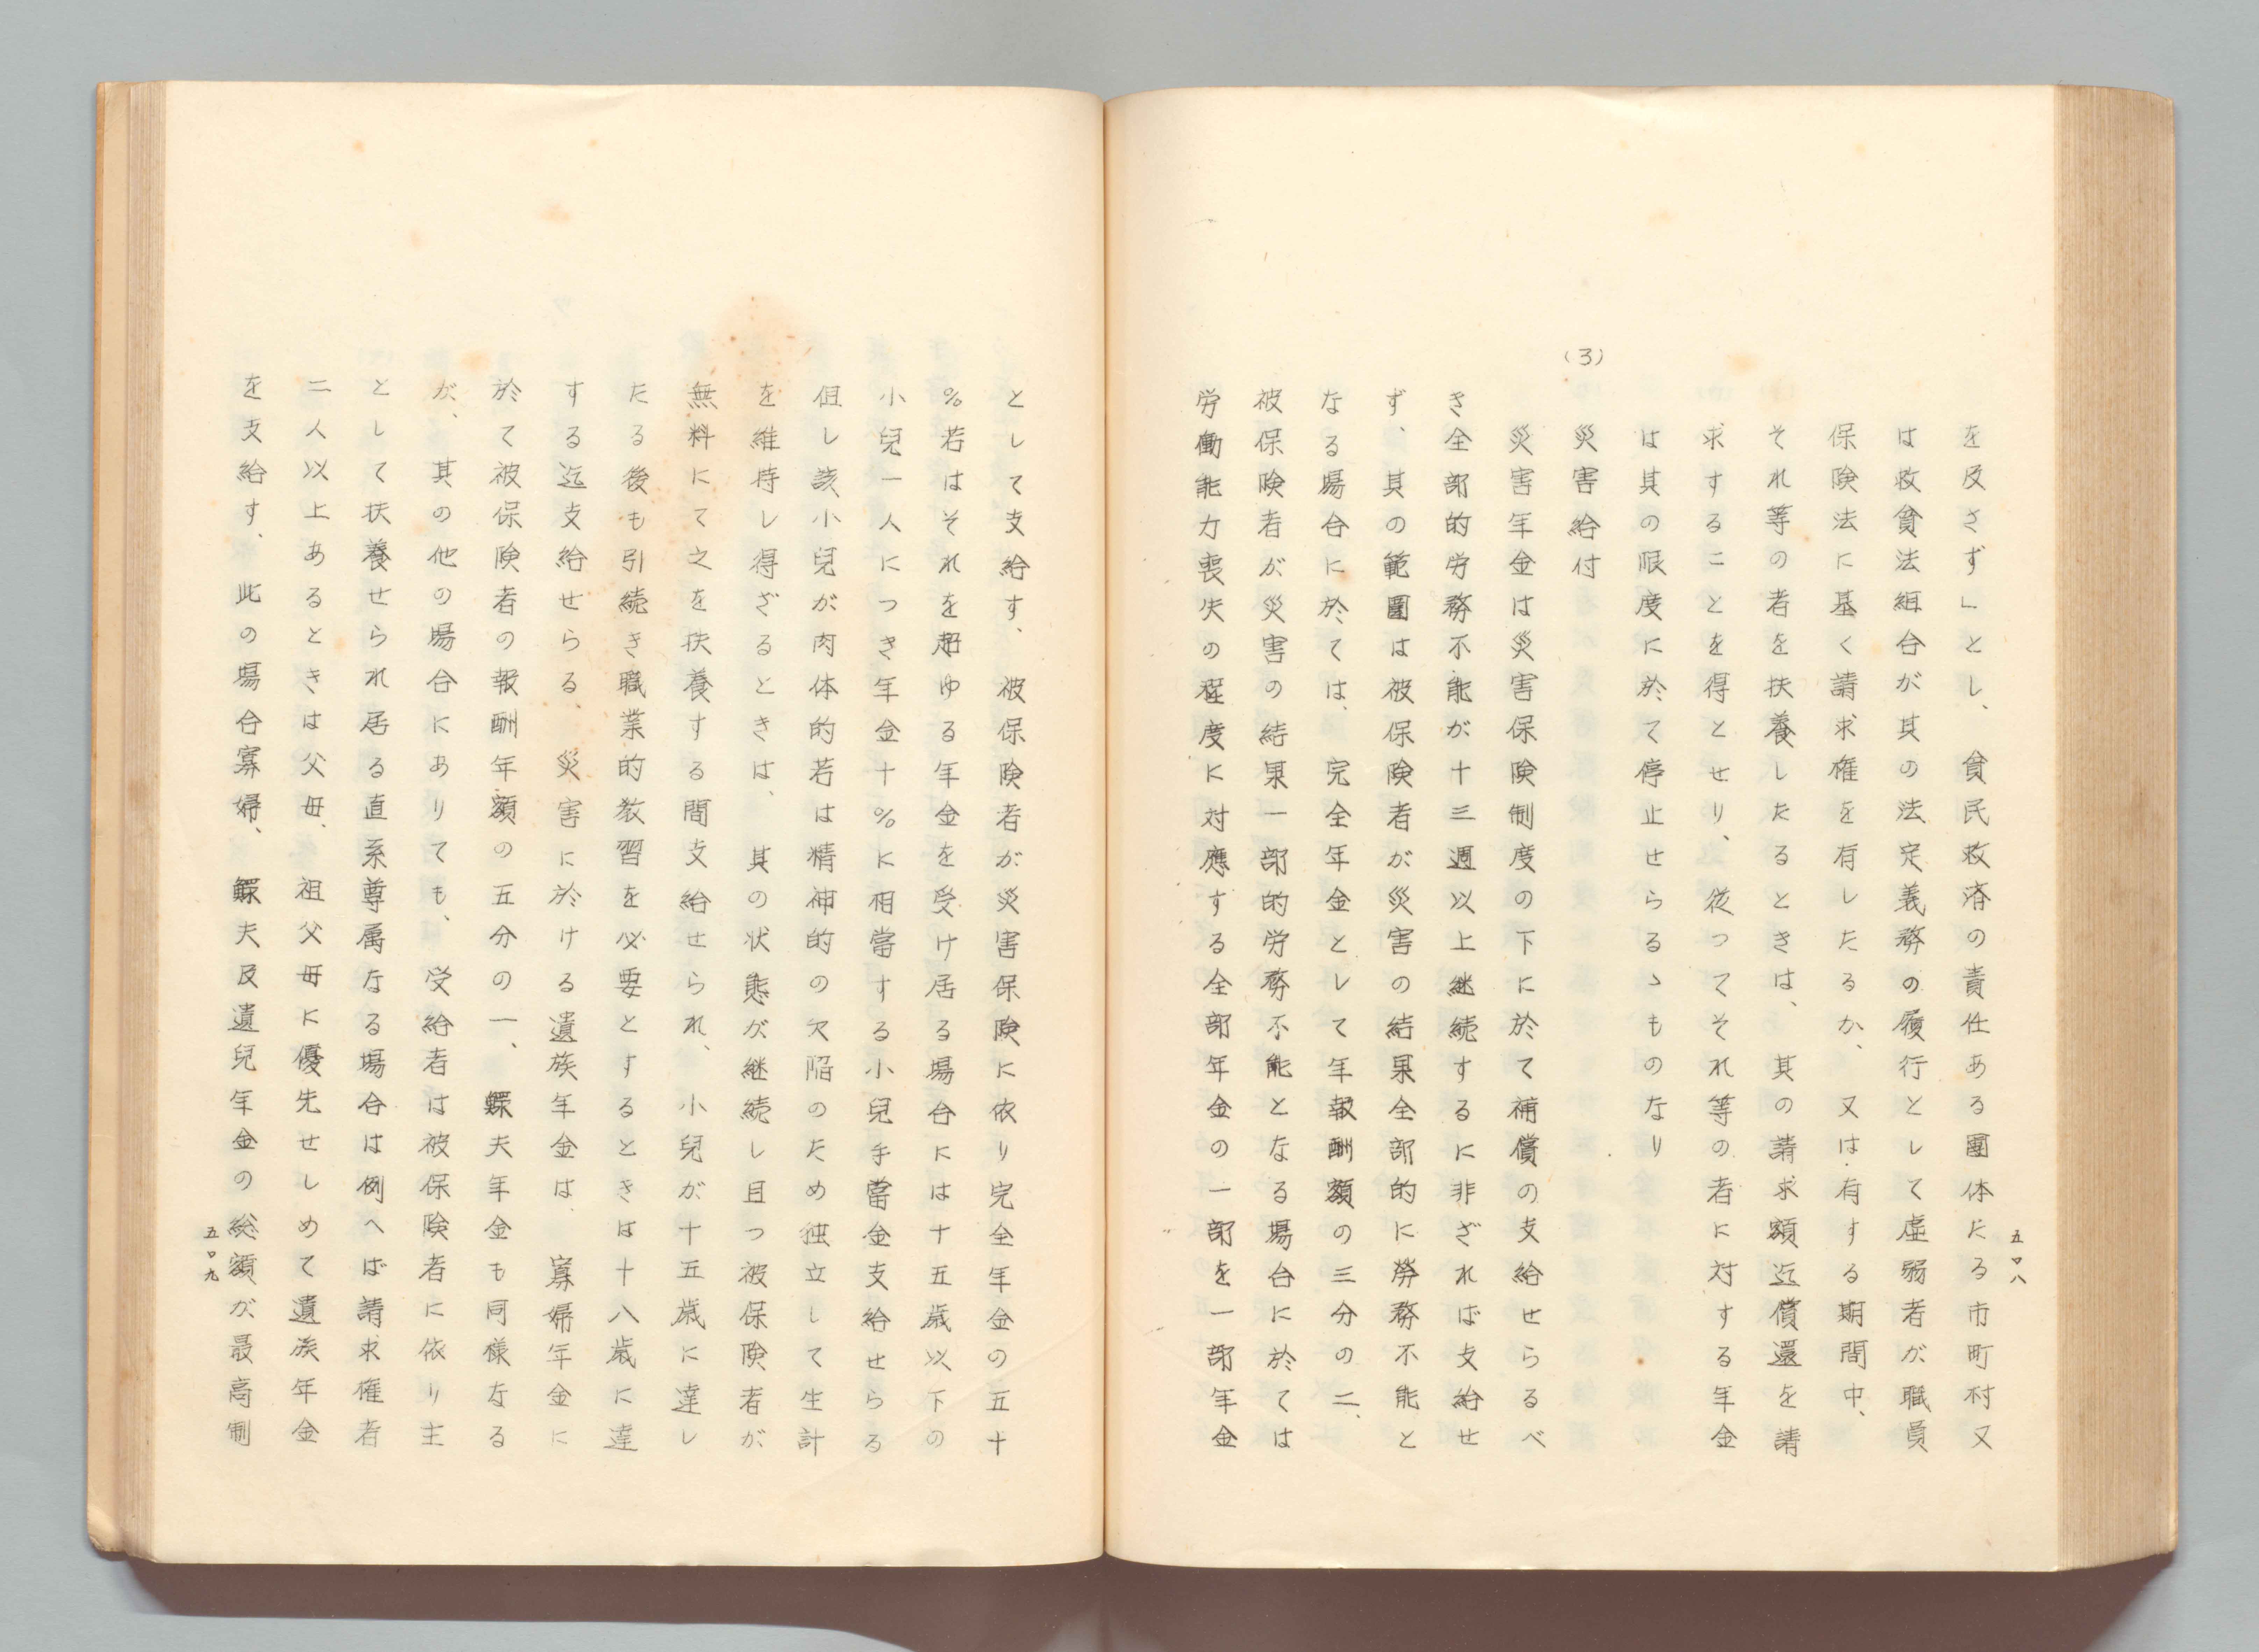 を及さず」とし、貧民救済の責任ある團体たる市町村又
は救貧法組合が其の法定義務の履行として虚弱者が職員
保険法に基く請求権を有したるか、又は有する期間中、
それ等の者を扶養したるときは、其の請求額迄償還を請
求することを得とせり、従つてそれ等の者に対する年金
は其の限度に於て停止せらるゝものなり
(3)
災害給付
災害年金は災害保険制度の下に於て補償の支給せらるべ
き全部的労務不能が十三週以上継続するに非ざれば支給せ
ず、其の範圍は被保険者が災害の結果全部的に勞務不能と
なる場合に於ては、完全年金として年報酬額の三分の二、
被保険者が災害の結果一部的労務不能となる場合に於ては
労働能力喪失の程度に対應する全部年金の一部を一部年金
五〇八
として支給す、被保険者が災害保険に依り完全年金の五十
%若はそれを超ゆる年金を受け居る場合には十五歳以下の
小兒一人につき年金十%に相當する小兒手當金支給せらる
但し該小兒が肉体的若は精神的の欠陥のため独立して生計
を維持し得ざるときは、其の状態が継続し且つ被保険者が
無料にて之を扶養する間支給せられ、小兒が十五歳に達し
たる後も引続き職業的教習を必要とするときは十八歳に達
する迄支給せらる、災害に於ける遺族年金は、寡婦年金に
於て被保険者の報酬年額の五分の一、鰥夫年金も同様なる
が、其の他の場合にありても、受給者は被保険者に依り主
として扶養せられ居る直系尊属なる場合は例へば請求権者
二人以上あるときは父母、祖父母に優先せしめて遺族年金
を支給す、此の場合寡婦、鰥夫及遺兒年金の総額が最高制
五〇九